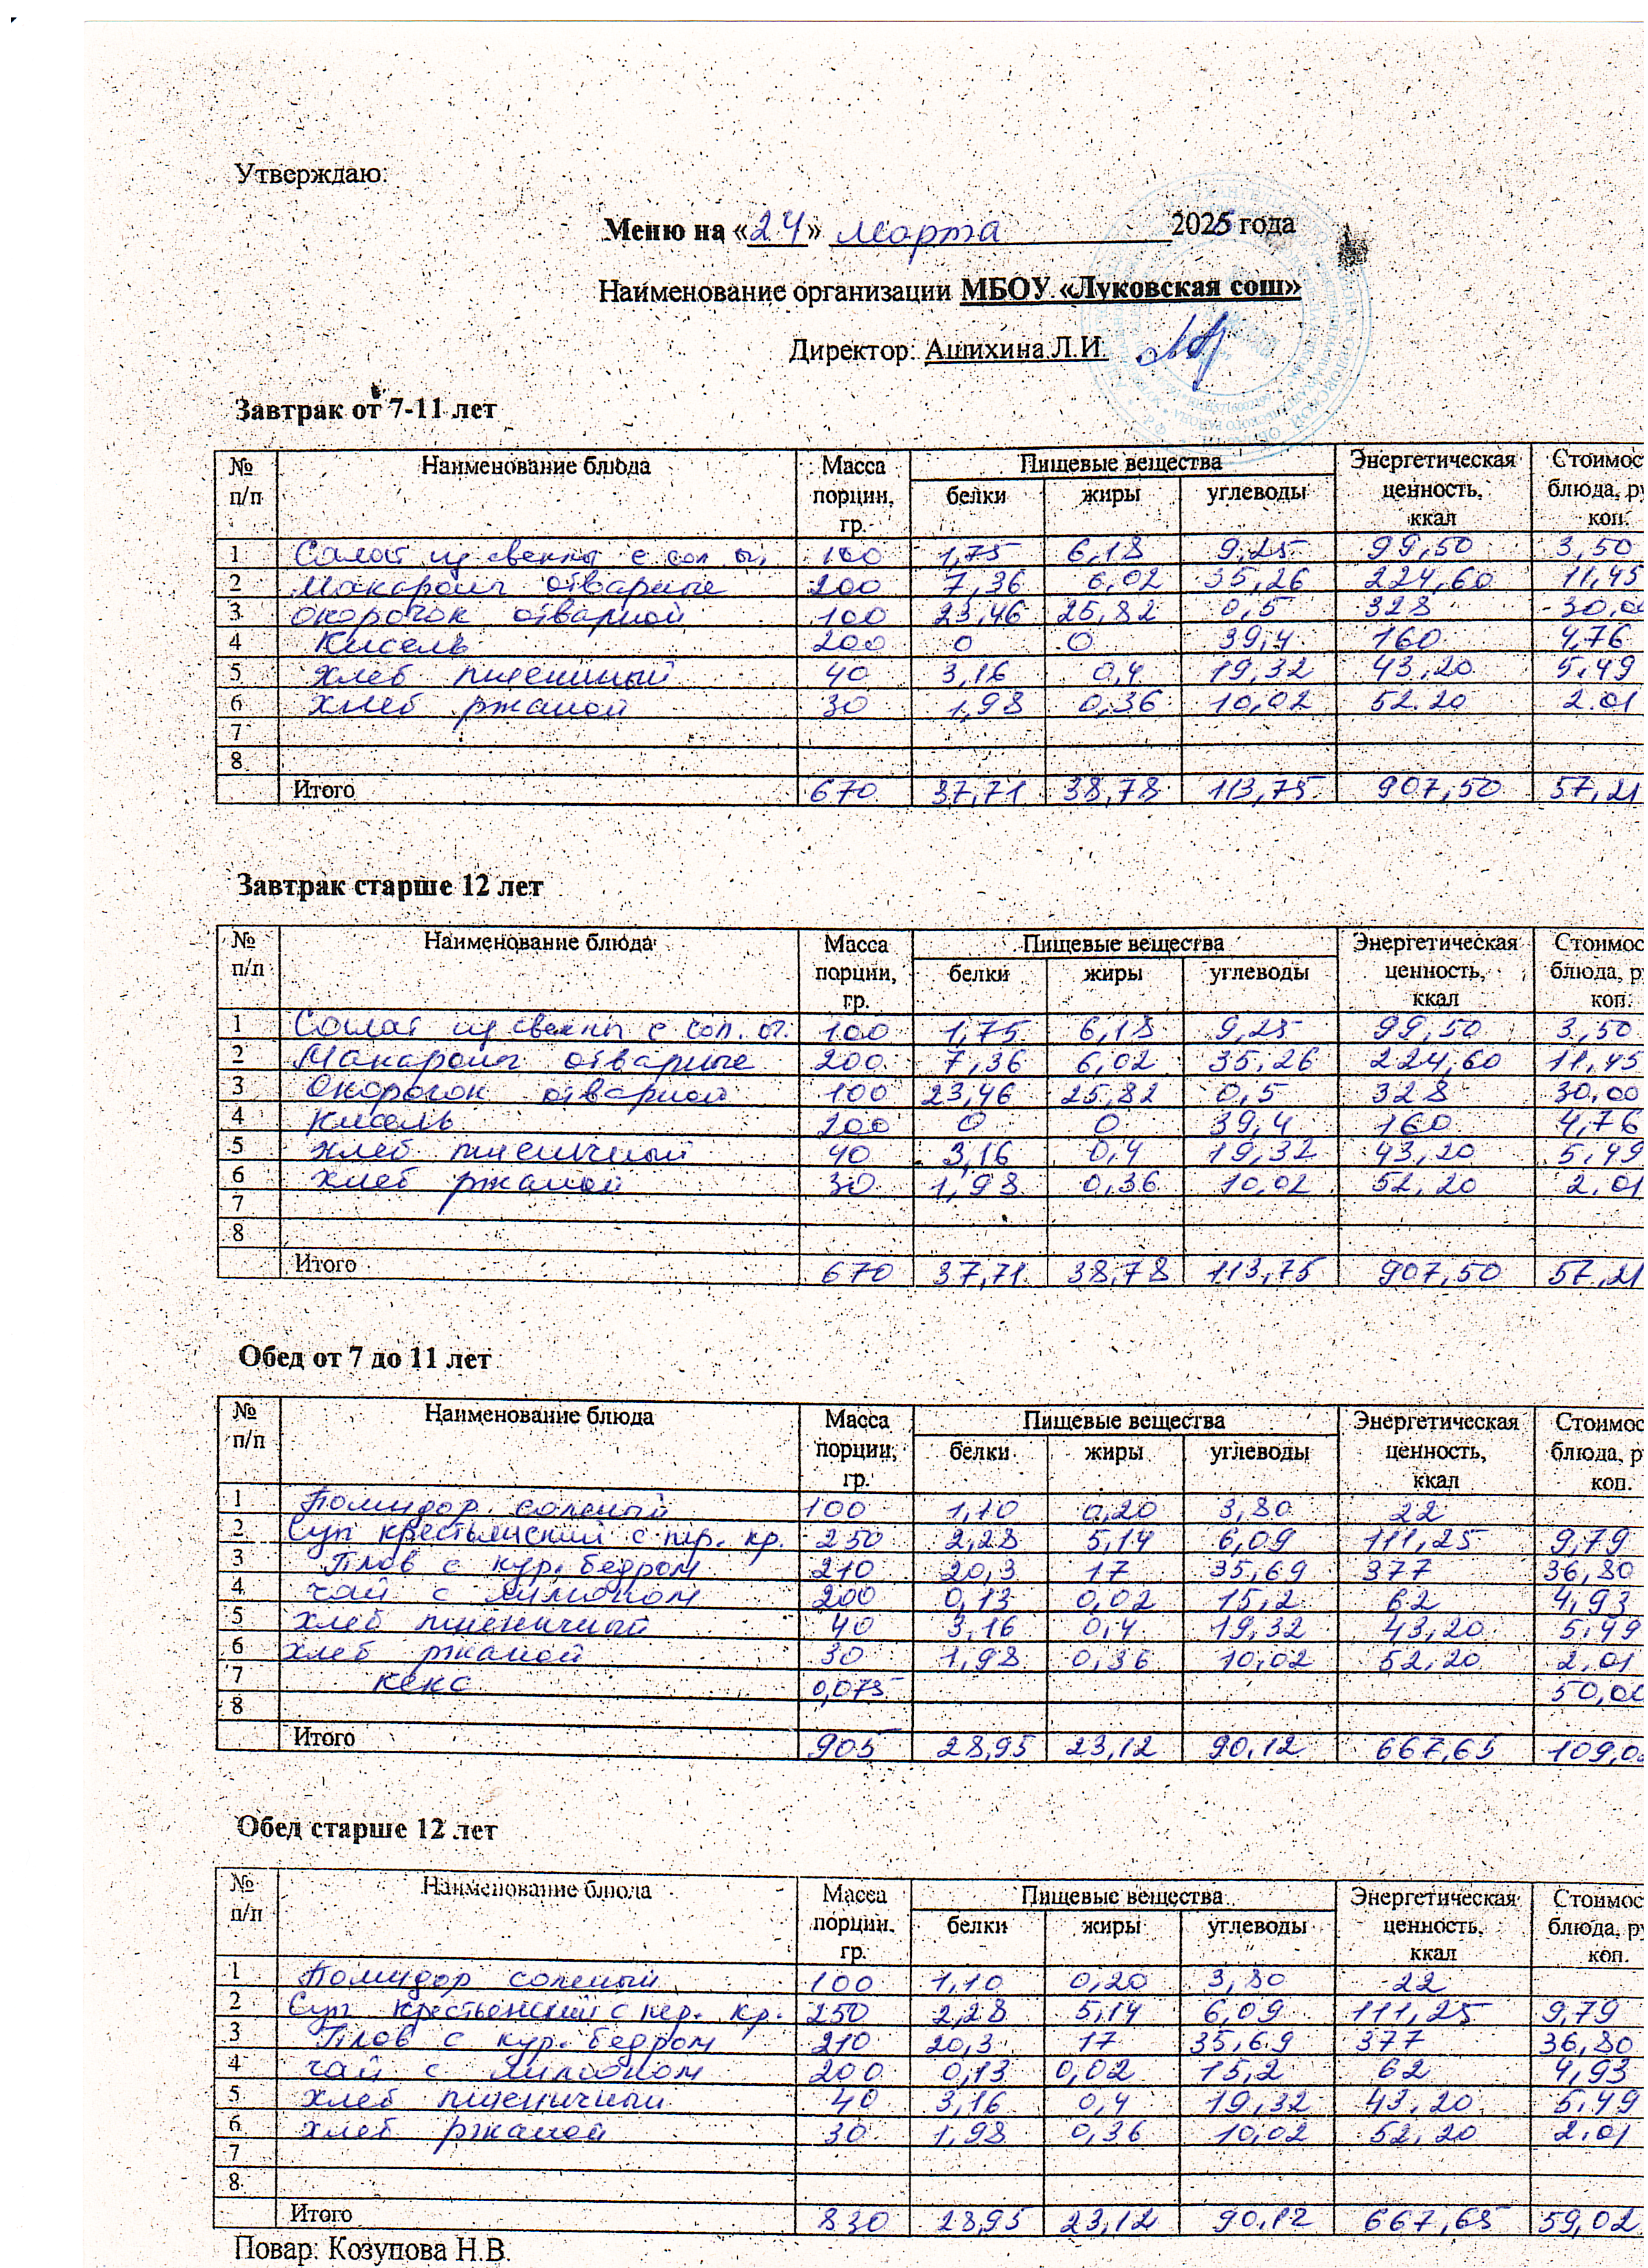 Утверждаю:
Меню на «24» марта 2025 года
Наименование организации МБОУ «Луковская сош»
Директор: Ашихина Л.И.
Завтрак от 7-11 лет
№ п/п Наименование блюда Масса порции, гр. Пищевые вещества белки жиры углеводы Энергетическая ценность, ккал Стоимос блюда, ру коп.
1 Салат из свеклы с сол. ог. 100 1,75 6,18 9,25 99,50 3,50
2 Макароны отварные 200 7,36 6,02 35,26 224,60 11,45
3 Окорочок отварной 100 23,46 25,82 0,5 328 30,00
4 Кисель 200 0 0 39,4 160 4,76
5 Хлеб пшеничный 40 3,16 0,4 19,32 43,20 5,49
6 Хлеб ржаной 30 1,98 0,36 10,02 52.20 2.01
7
8
Итого 670 37,71 38,78 113,75 907,50 57,21
Завтрак старше 12 лет
№ п/п Наименование блюда Масса порции, гр. Пищевые вещества белки жиры углеводы Энергетическая ценность, ккал Стоимос блюда, р коп.
1 Салат из свеклы с сол. ог. 100 1,75 6,18 9,25 99,50 3,50
2 Макароны отварные 200 7,36 6,02 35,26 224,60 11,45
3 Окорочок отварной 100 23,46 25,82 0,5 328 30,00
4 Кисель 200 0 0 39,4 160 4,76
5 Хлеб пшеничный 40 3,16 0,4 19,32 43,20 5,49
6 Хлеб ржаной 30 1,98 0,36 10,02 52,20 2,01
7
8
Итого 670 37,71 38,78 113,75 907,50 57,21
Обед от 7 до 11 лет
№ п/п Наименование блюда Масса порции, гр. Пищевые вещества белки жиры углеводы Энергетическая ценность, ккал Стоимос блюда, р коп.
1 Помидор соленый 100 1,10 0,20 3,80 22
2 Суп крестьянский с пер. кр. 250 2,28 5,14 6,09 111,25 9,79
3 Плов с кур. бедром 210 20,3 17 35,69 377 36,80
4 Чай с лимоном 200 0,13 0,02 15,2 62 4,93
5 Хлеб пшеничный 40 3,16 0,4 19,32 43,20 5,49
6 Хлеб ржаной 30 1,98 0,36 10,02 52,20 2,01
7 кекс 0,075 50,00
8
Итого 905 28,95 23,12 90,12 667,65 109,02
Обед старше 12 лет
№ п/п Наименование блюда Масса порции, гр. Пищевые вещества белки жиры углеводы Энергетическая ценность, ккал Стоимос блюда, ру коп.
1 Помидор соленый 100 1,10 0,20 3,80 22
2 Суп крестьянский с пер. кр. 250 2,28 5,14 6,09 111,25 9,79
3 Плов с кур. бедром 210 20,3 17 35,69 377 36,80
4 Чай с лимоном 200 0,13 0,02 15,2 62 4,93
5 Хлеб пшеничный 40 3,16 0,4 19,32 43,20 5,49
6 Хлеб ржаной 30 1,98 0,36 10,02 52,20 2,01
7
8
Итого 830 28,95 23,12 90,12 667,65 59,02
Повар: Козупова Н.В.